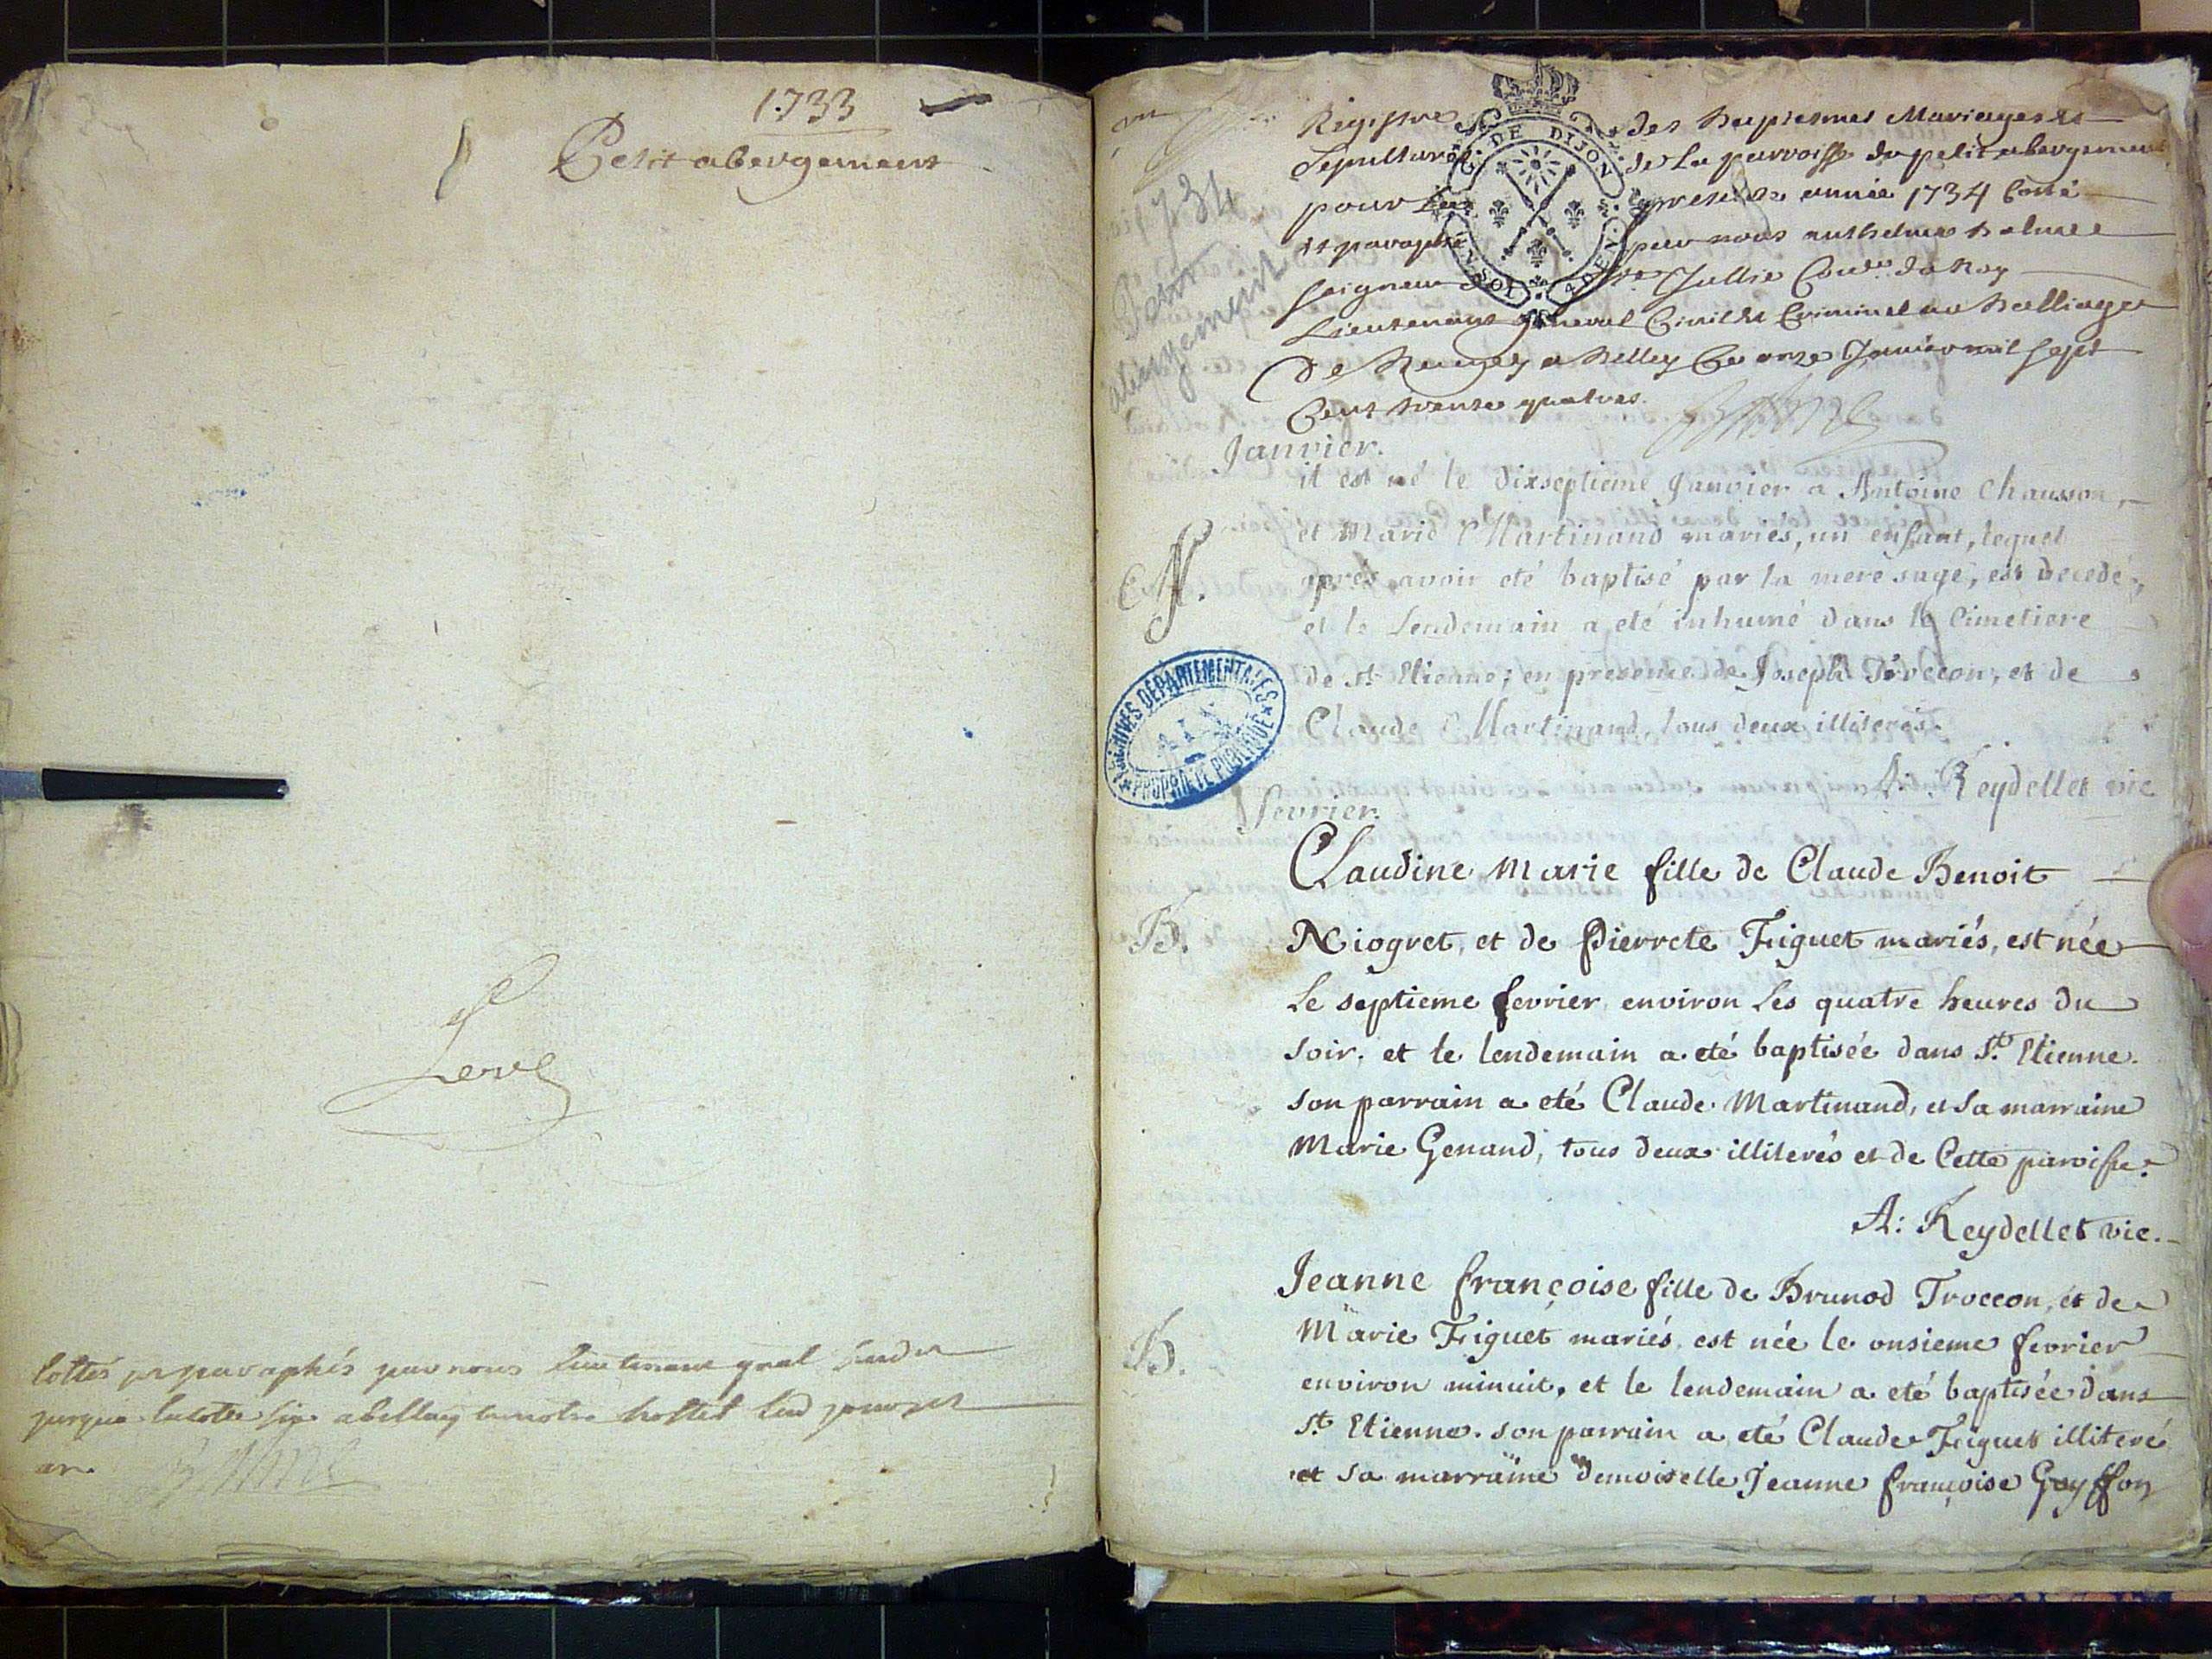 1733
Petit abergement
cottés et paraphés par nous lieutenant gnal
jusqua
an.
1734
Petit
abergement
Registre des Baptesmes Mariages et
Sepultures de la parroisse du petit abergement
pour la presente année 1734 Cotté
et paraphé par nous anthelme
seigneur de Ste Jullie Conser du Roy
Lieutenant general Civil et Criminel au Balliage
De Bugey a Belley Ce onze Janvier mil sept
Cent trente quatres.
G. DE DIJON
Janvier.
il est né le dixseptieme Janvier a Antoine Chausson,
et Marie Martinand mariés, un enfant, lequel
aprés avoir eté baptisé par la mere sage, est decedé,
et le Lendemain a eté inhumé dans le Cimetiere
de St Etienne; en presence de Joseph Troccon, et de
Claude Martinand, tous deux illiterés.
A: Reydellet vic
ARCHIVES DÉPARTEMENTALES
PROPRIÉTÉ PUBLIQUE
fevrier.
Claudine Marie fille de Claude Benoit
B.
Niogret, et de Pierrete Figuet mariés, est née
Le septieme fevrier environ Les quatre heures du
soir, et le lendemain a eté baptisée dans St Etienne.
son parrain a eté Claude Martinand, et sa marraine
Marie Genand, tous deux illiterés et de Cette paroisse.
A: Reydellet vic.
Jeanne françoise fille de Brunod Troccon, et de
B.
Marie Figuet mariés est née le onsieme fevrier
environ minuit, et le lendemain a eté baptisée dans
St Etienne. son parrain a eté Claude Figuet illiteré
et sa marraine demoiselle Jeanne françoise Goyffon